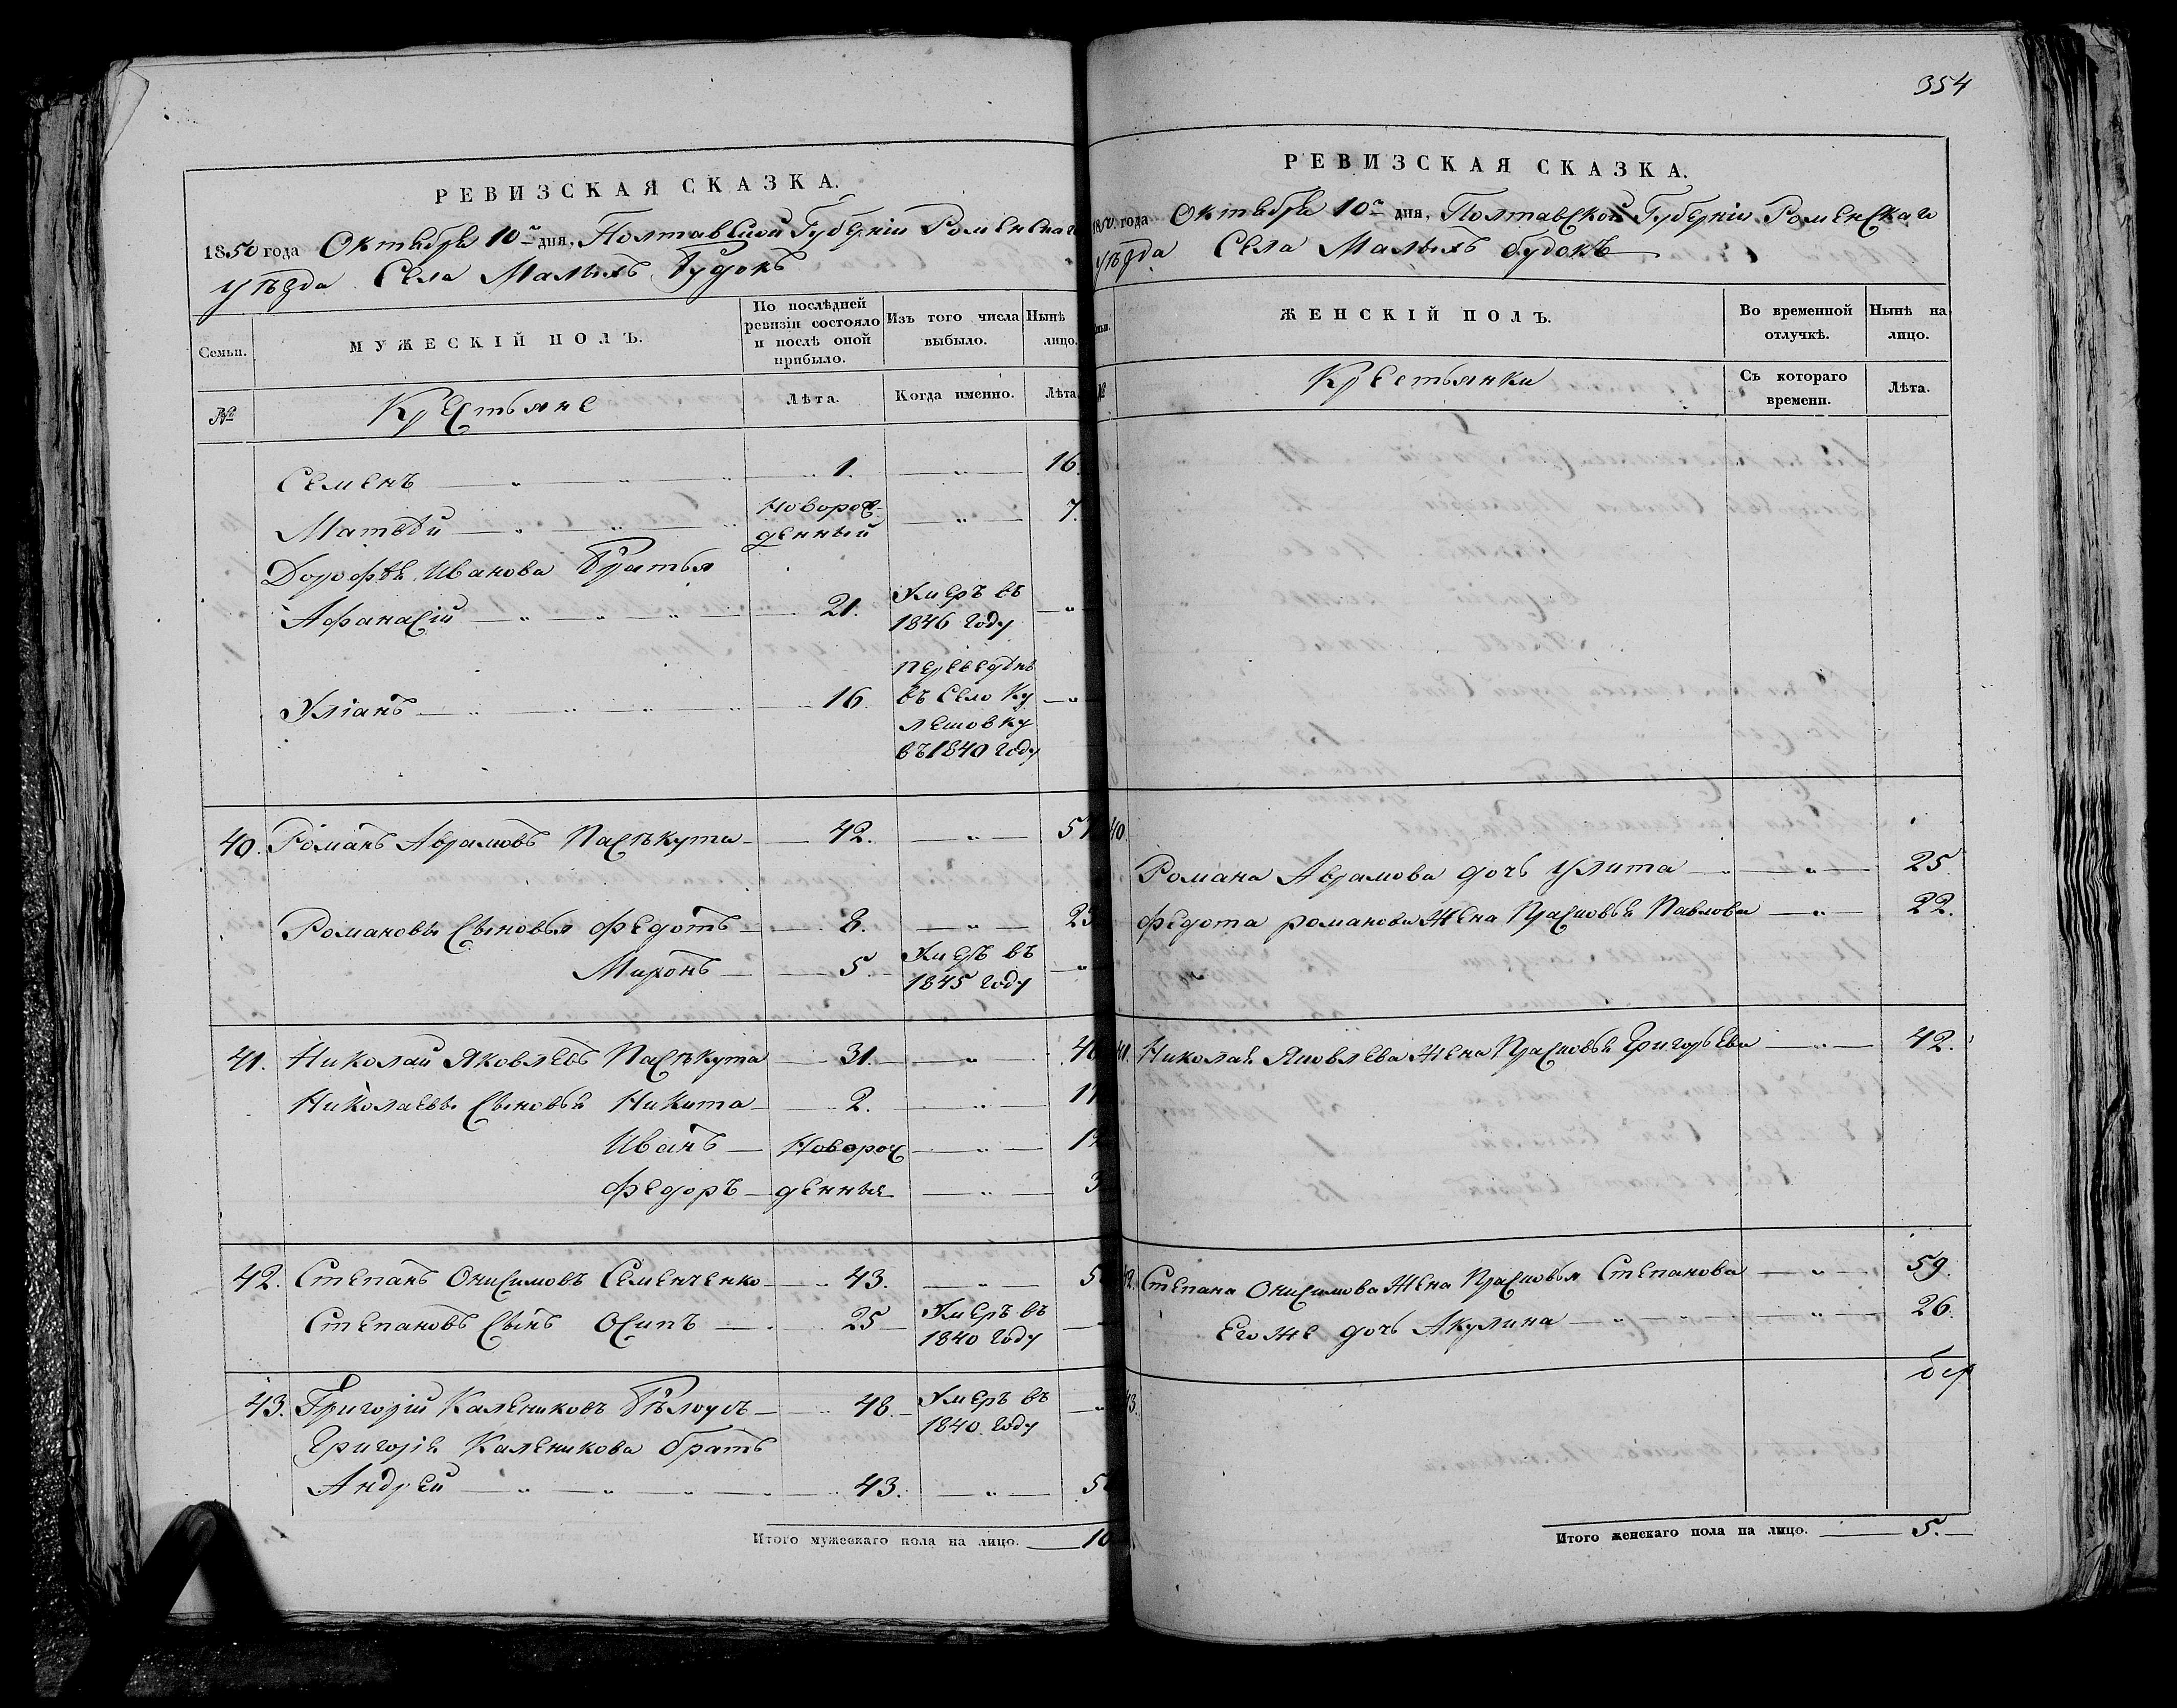 РЕВИЗСКАЯ СКАЗКА.
1850 года Октября 10го дня, Полтавской Губерніи Роменскаго
уѣзда Села Малыхъ Будокъ
Семьи.
МУЖЕСКІЙ ПОЛЪ.
По послѣдней ревизіи состояло и послѣ оной прибыло.
Изъ того числа выбыло.
Нынѣ лицо.
№
Крестьяне
Лѣта.
Когда именно.
Лѣта
Семенъ — 1. — 16.
Матвѣй — Новорожденный — 7.
Дорофѣя Иванова Братья
Афанасій — 21. Умеръ въ 1846 году —
Уліанъ — 16. переведѣнъ въ Село Кулешовку въ 1840 году —
40. Романъ Аврамовъ Пасѣкута — 42. —
Романовы Сыновья Федотъ — 8. —
Миронъ — 5. Умеръ въ 1845 году —
41. Николай Яковлевъ Пасѣкута — 31. —
Николаевы Сыновья Никита — 2. —
Иванъ — Новорож
Федоръ — денные — 3
42. Степанъ Онисимовъ Семенченко — 43. —
Степановъ Сынъ Осипъ — 25 Умеръ въ 1840 году —
43. Григорій Калениковъ Бѣлоусъ — 48. Умеръ въ 1840 году —
Григорія Каленикова братъ
Андрей — 43. —
Итого мужескаго пола на лицо. — 10
354
РЕВИЗСКАЯ СКАЗКА.
1850 года Октября 10го дня, Полтавской Губерніи Роменскаго
уѣзда Села Малыхъ будокъ
ЖЕНСКІЙ ПОЛЪ.
Во временной отлучкѣ.
Нынѣ на лицо.
Крестьянки
Съ котораго времени.
Лѣта.
40.
Романа Аврамова дочь Улита — 25.
Федота романова Жена Прасковья Павлова — 22.
41. Николая Яковлева Жена Прасковья Григорьева — 42.
42. Степана Онисимова Жена Прасковья Степанова — 59.
Его же дочь Акулина — 26.
43.
Итого женскаго пола на лицо. — 5. —